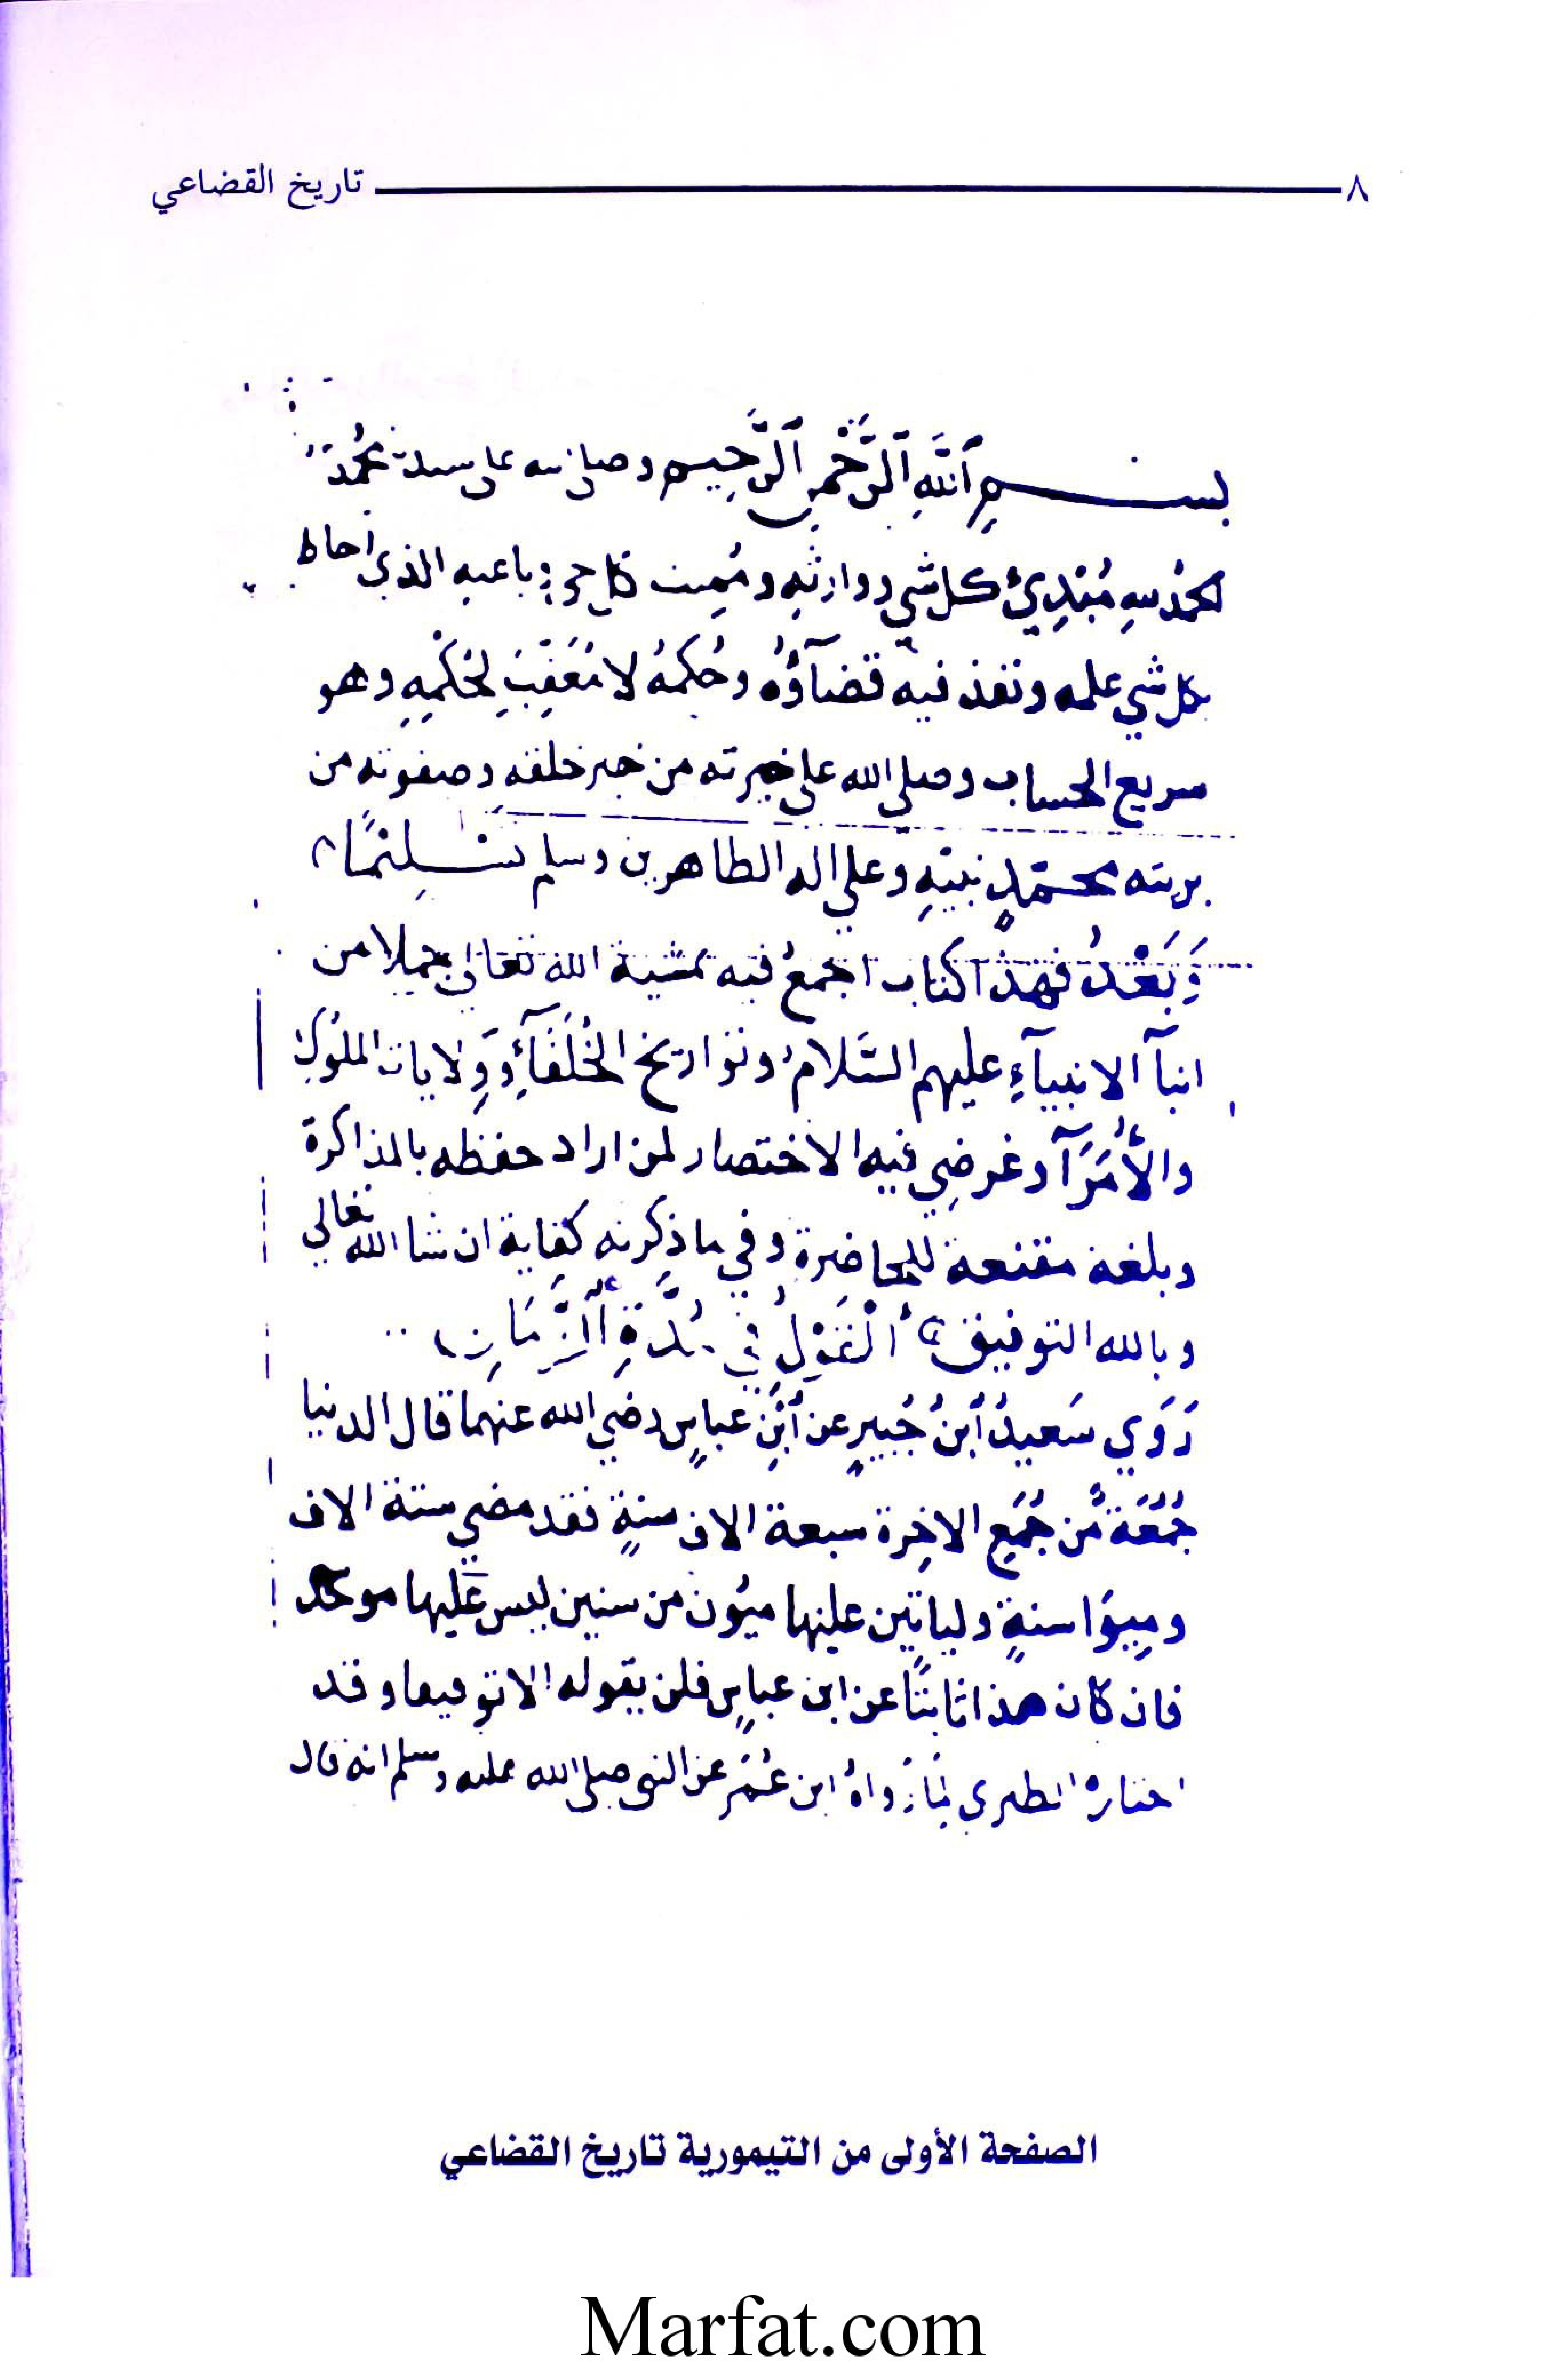 ٨ تاريخ القضاعي
بسم الله الرحمن الرحيم وصلى الله على سيدنا محمد
الحمد لله مُبْدِئ كل شي ووارثِهِ ومُمِيت كل حي وباعثه الذي احاط
بكل شي علمه ونفذ فيه قضآؤُهُ وحُكمُهُ لا مُعَقِّبَ لِحُكْمِهِ وهو
سريع الحساب وصلى الله على خيرته من خير خلقه وصفوته من
بريته محمّدٍ نبيّهِ وعلى اله الطاهرين وسلم تسليمًا
وَبَعْدُ فهذا كتاب اجمعُ فيه بمشية الله تعالى جملا من
انبآ الانبيآءِ عليهم السَّلامُ وتواريخ الخُلَفَآءِ وَوِلايات الملُوك
والأُمَرَآ وغرضِي فيه الاختصار لمن اراد حفظه بالمذاكرة
وبلغة مقنعة للمحاضرة وفي ما ذكرته كفاية ان شا الله تعالى
وبالله التوفيق اَلْقَوْلُ فِي مُدَّةِ اَلزَّمَانِ
رَوَي سَعيدُ اَبنُ جُبيرٍ عن اَبْنِ عباسٍ رضي الله عنهما قال الدنيا
جُمُعَة مِّن جُمَعِ الاخِرة سبعة الاف سنةٍ فقد مضي ستة الاف
ومِيؤا سنةٍ ولياتِين عليها ميُون من سنين ليس عَليها موحد
فان كان هذا ثابتًا عن ابن عباسٍ فلن يقوله الا توقيفا وقد
اختاره الطبرى لِمَا رَواهُ ابن عُمَر عن النبى صلى الله عليه وسلم انه قال
الصفحة الأولى من التيمورية تاريخ القضاعي
Marfat.com